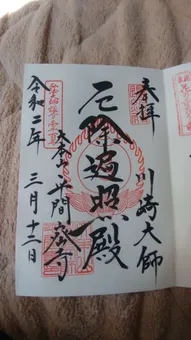 奉拝
川崎大師
厄除遍照殿
大本山平間寺
令和二年
三月十二日